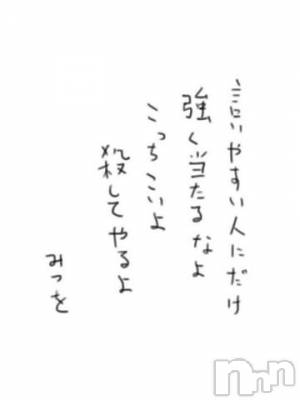 言いやすい人にだけ
強く当たるなよ
こっちこいよ
殺してやるよ
みつを